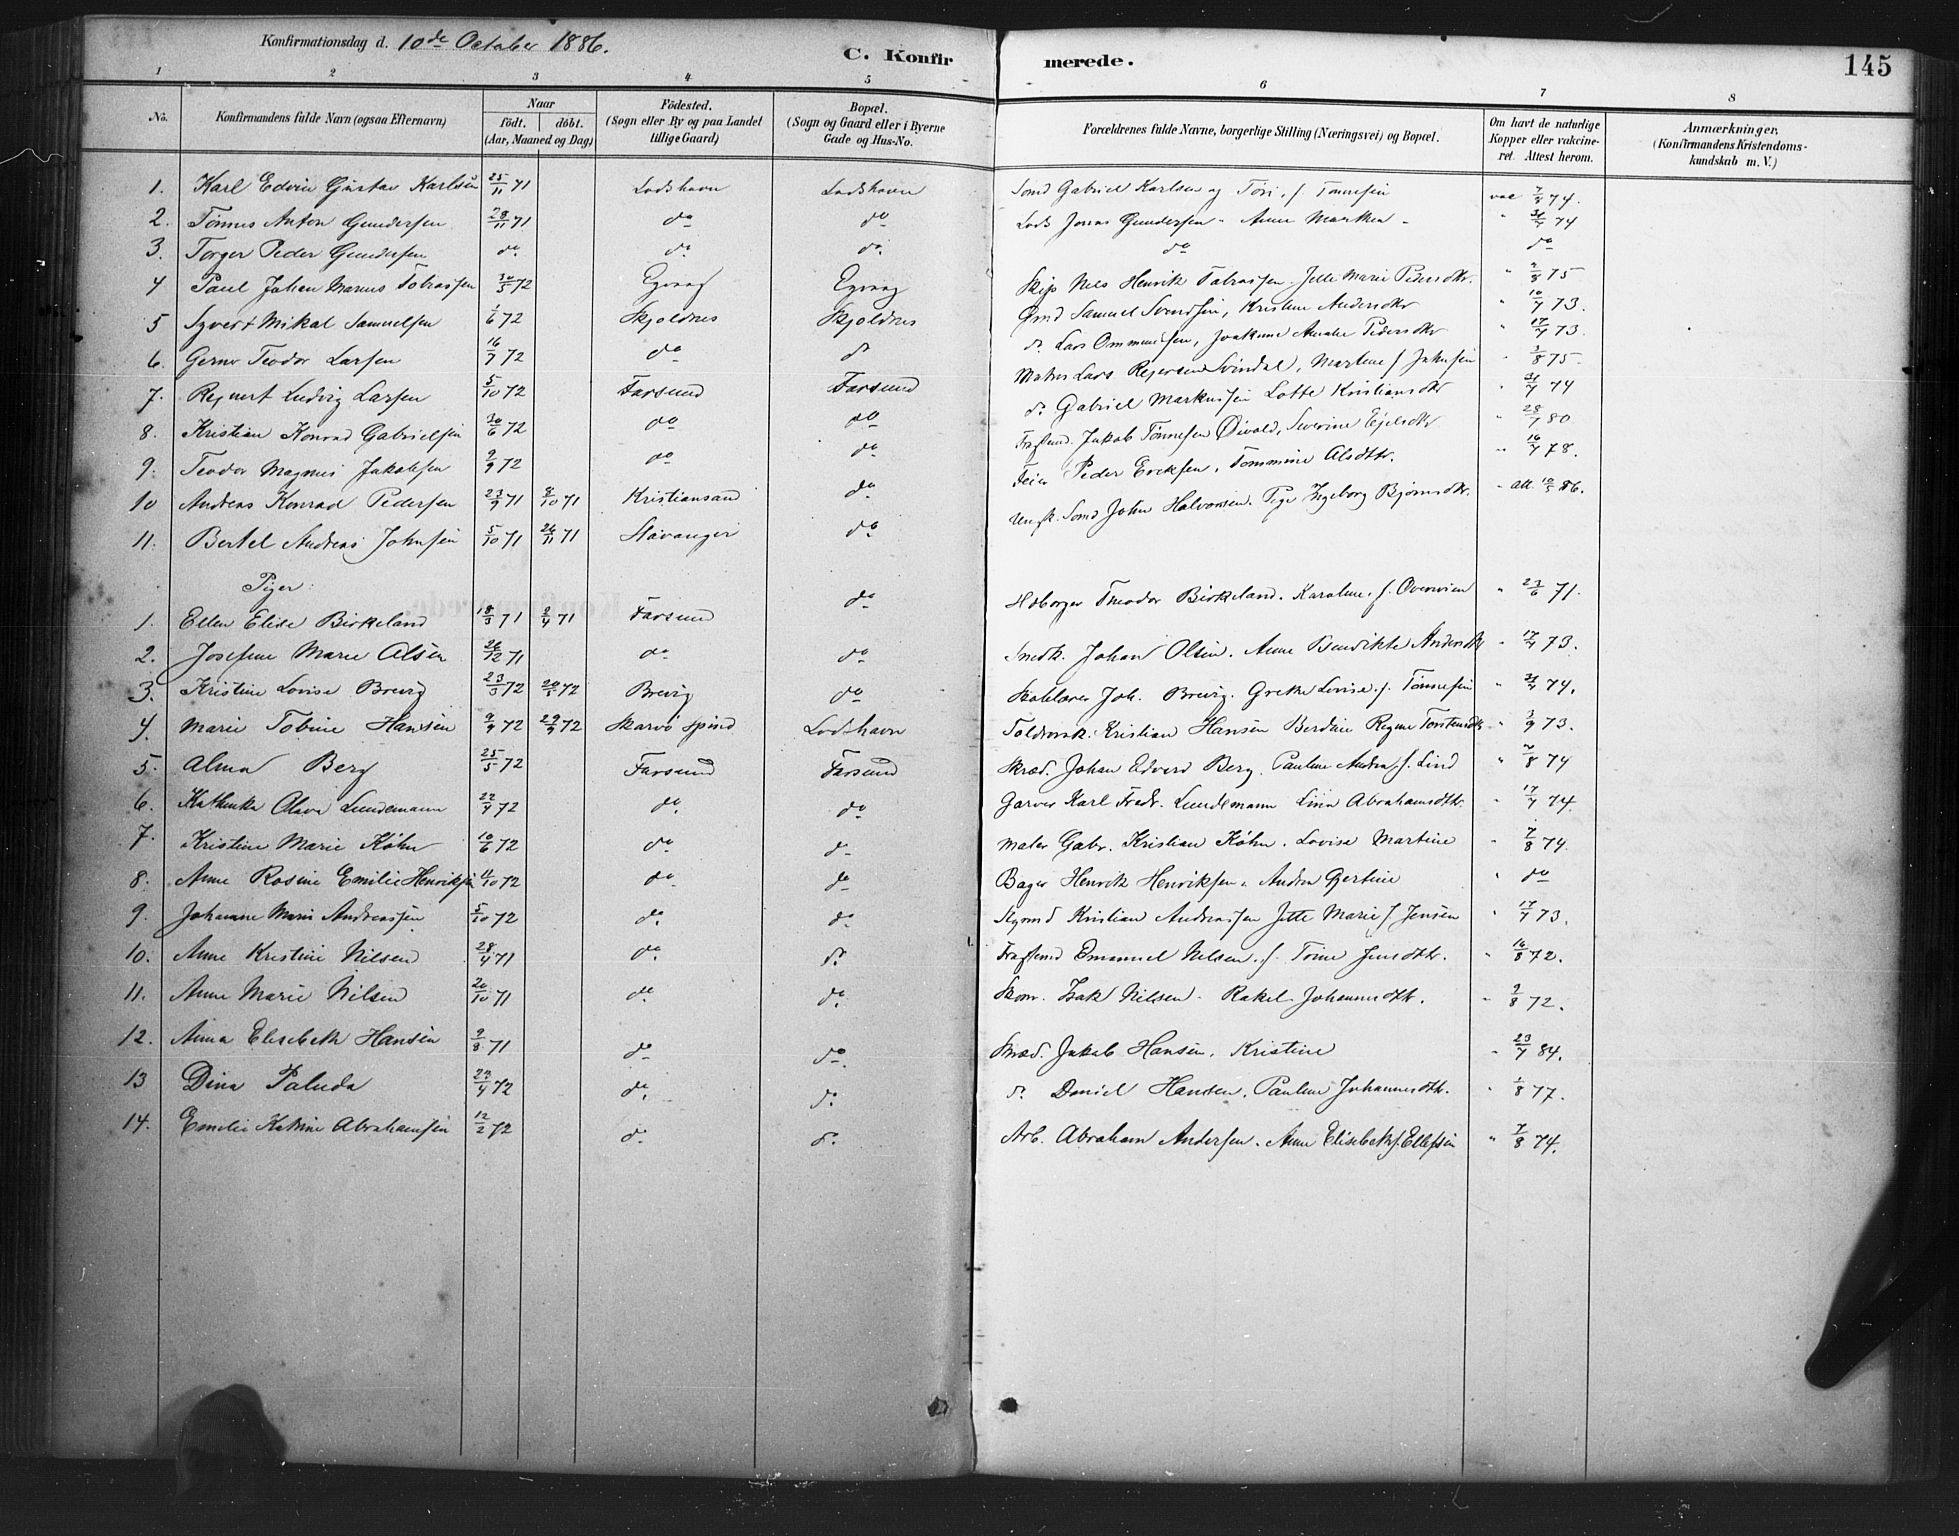 Konfirmationsdag d. 10de October 1886. C. Konfirmerede. 145
1 2 3 4 5 6 7 8
No. Konfirmandens fulde Navn (ogsaa Efternavn) Naar födt. döbt. (Aar, Maaned og Dag) Födested. (Sogn eller By og paa Landet tillige Gaard) Bopæl. (Sogn og Gaard eller i Byerne Gade og Hus-No. Forældrenes fulde Navne, borgerlige Stilling (Næringsvei) og Bopæl. Om havt de naturlige Kopper eller vakcineret. Attest herom. Anmærkninger. (Konfirmandens Kristendomskundskab m. V.)
1. Karl Edvin Gustav Karlsen 25/11 71 Lodshavn Lodshavn Sømd Gabriel Karlsen og Töri, f. Tönnesen vac 7/8 74.
2. Tönnes Anton Gundersen 28/11 71 do do Lods Jonas Gundersen " Anne Marthea - " 31/7 74
3. Torger Peder Gundersen do. do. do. do do
4 Paul Johan Marius Tobiassen 30/5 72 Egvaag Egvaag Skip Nils Henrik Tobiassen. Jelle Marie Pedersdtr. " 2/8 75
5 Syvert Mikal Samuelsen 1/6 72 Skjoldnes Skjoldnes Gmd Samuel Svendsen, Kristine Andersdtr " 10/7 73.
6. Gerner Teodor Larsen 16/7 72 do do. Lars Ommundsen, Joakime Amalie Pedersdtr " 17/7 73.
7. Reinert Ludvig Larsen 5/10 72 Farsund Farsund Matros Lars Reiersen Svindal, Martine f Jakobsen " 3/8 75
8. Kristian Konrad Gabrielsen 30/6 72 do do do. Gabriel Markussen Lotte Kristiansdtr " 31/7 74
9. Teodor Magnus Jakobsen 2/9 72 do do. Fragtmd. Jakob Tönnesen Öivold, Severine Ejelsdtr " 28/7 80
10 Andreas Konrad Pedersen 23/9 71 8/10 71 Kristiansand do. Feier Peder Ericksen, Tommine Alsdtr. " 16/7 78.
11. Bertel Andreas Johnsen 5/10 71 26/11 71 Stavanger do Ungk. Sømd John Halvorsen. Pige Ingeborg Bjørnsdtr. " att. 10/5 86.
Piger
1. Ellen Elise Birkeland 18/3 71 2/4 71 Farsund do Hdborger Theodor Birkeland. Karoline. f. Overvien " 23/6 71.
2. Josefine Marie Olsen 26/12 71 do do Snedk. Johan Olsen. Anne Benedikte Andersdtr " 17/7 73.
3. Kristine Lovise Brevig 23/3 72 20/5 72 Brevig do Skolelærer Joh. Brevig. Grethe Lovise. f. Tönnesen " 31/7 74.
4. Marie Tobine Hansen 9/4 72 29/9 72 Skarvö Spind Lodshavn Toldvorsk. Kristian Hansen Berdine Regine Torstensdtr " 3/9 73.
5. Alma Berg 25/5 72 Farsund Farsund Skræd. Johan Edvard Berg. Pauline Andrea f. Lind " 7/8 74
6. Kathinka Olava Lundemann 22/4 72 do. do. Garver Karl Fredr. Lundemann Lina Abrahamsdtr. " 17/7 74.
7. Kristine Marie Köhn 10/6 72 do do Maler Gabr. Kristian Köhn. Lovise Martine " 7/8 74.
8. Anne Rosine Emilie Henriksen 4/10 72 do do Bager Henrik Henriksen. Andrea Gjertine " do
9. Johanne Marie Andreassen 5/10 72 do. do. Stymd Kristian Andreassen Jette Marie f. Jensen " 17/7 73.
10. Anne Kristine Nilsen 28/4 71 do. do. Fragtmd Emanuel Nilsen. f. Tome Jensdtr. " 16/8 72.
11. Anne Marie Nilsen 20/10 71 do. do. Skom. Isak Nilsen. Rakel Johannesdtr. " 2/8 72.
12. Anna Elisebeth Hansen 9/8 71 do do. Skræd. Jakob Hansen. Kristine " 23/7 84.
13 Dina Paluda 23/4 72 do. do. do. Daniel Hansen. Pauline Johannesdtr. " 1/8 77.
14. Emilie Katrine Abrahamsen 12/2 72 do. do. Arb. Abraham Andersen. Anne Elisebeth f. Ellefsen " 7/8 74.